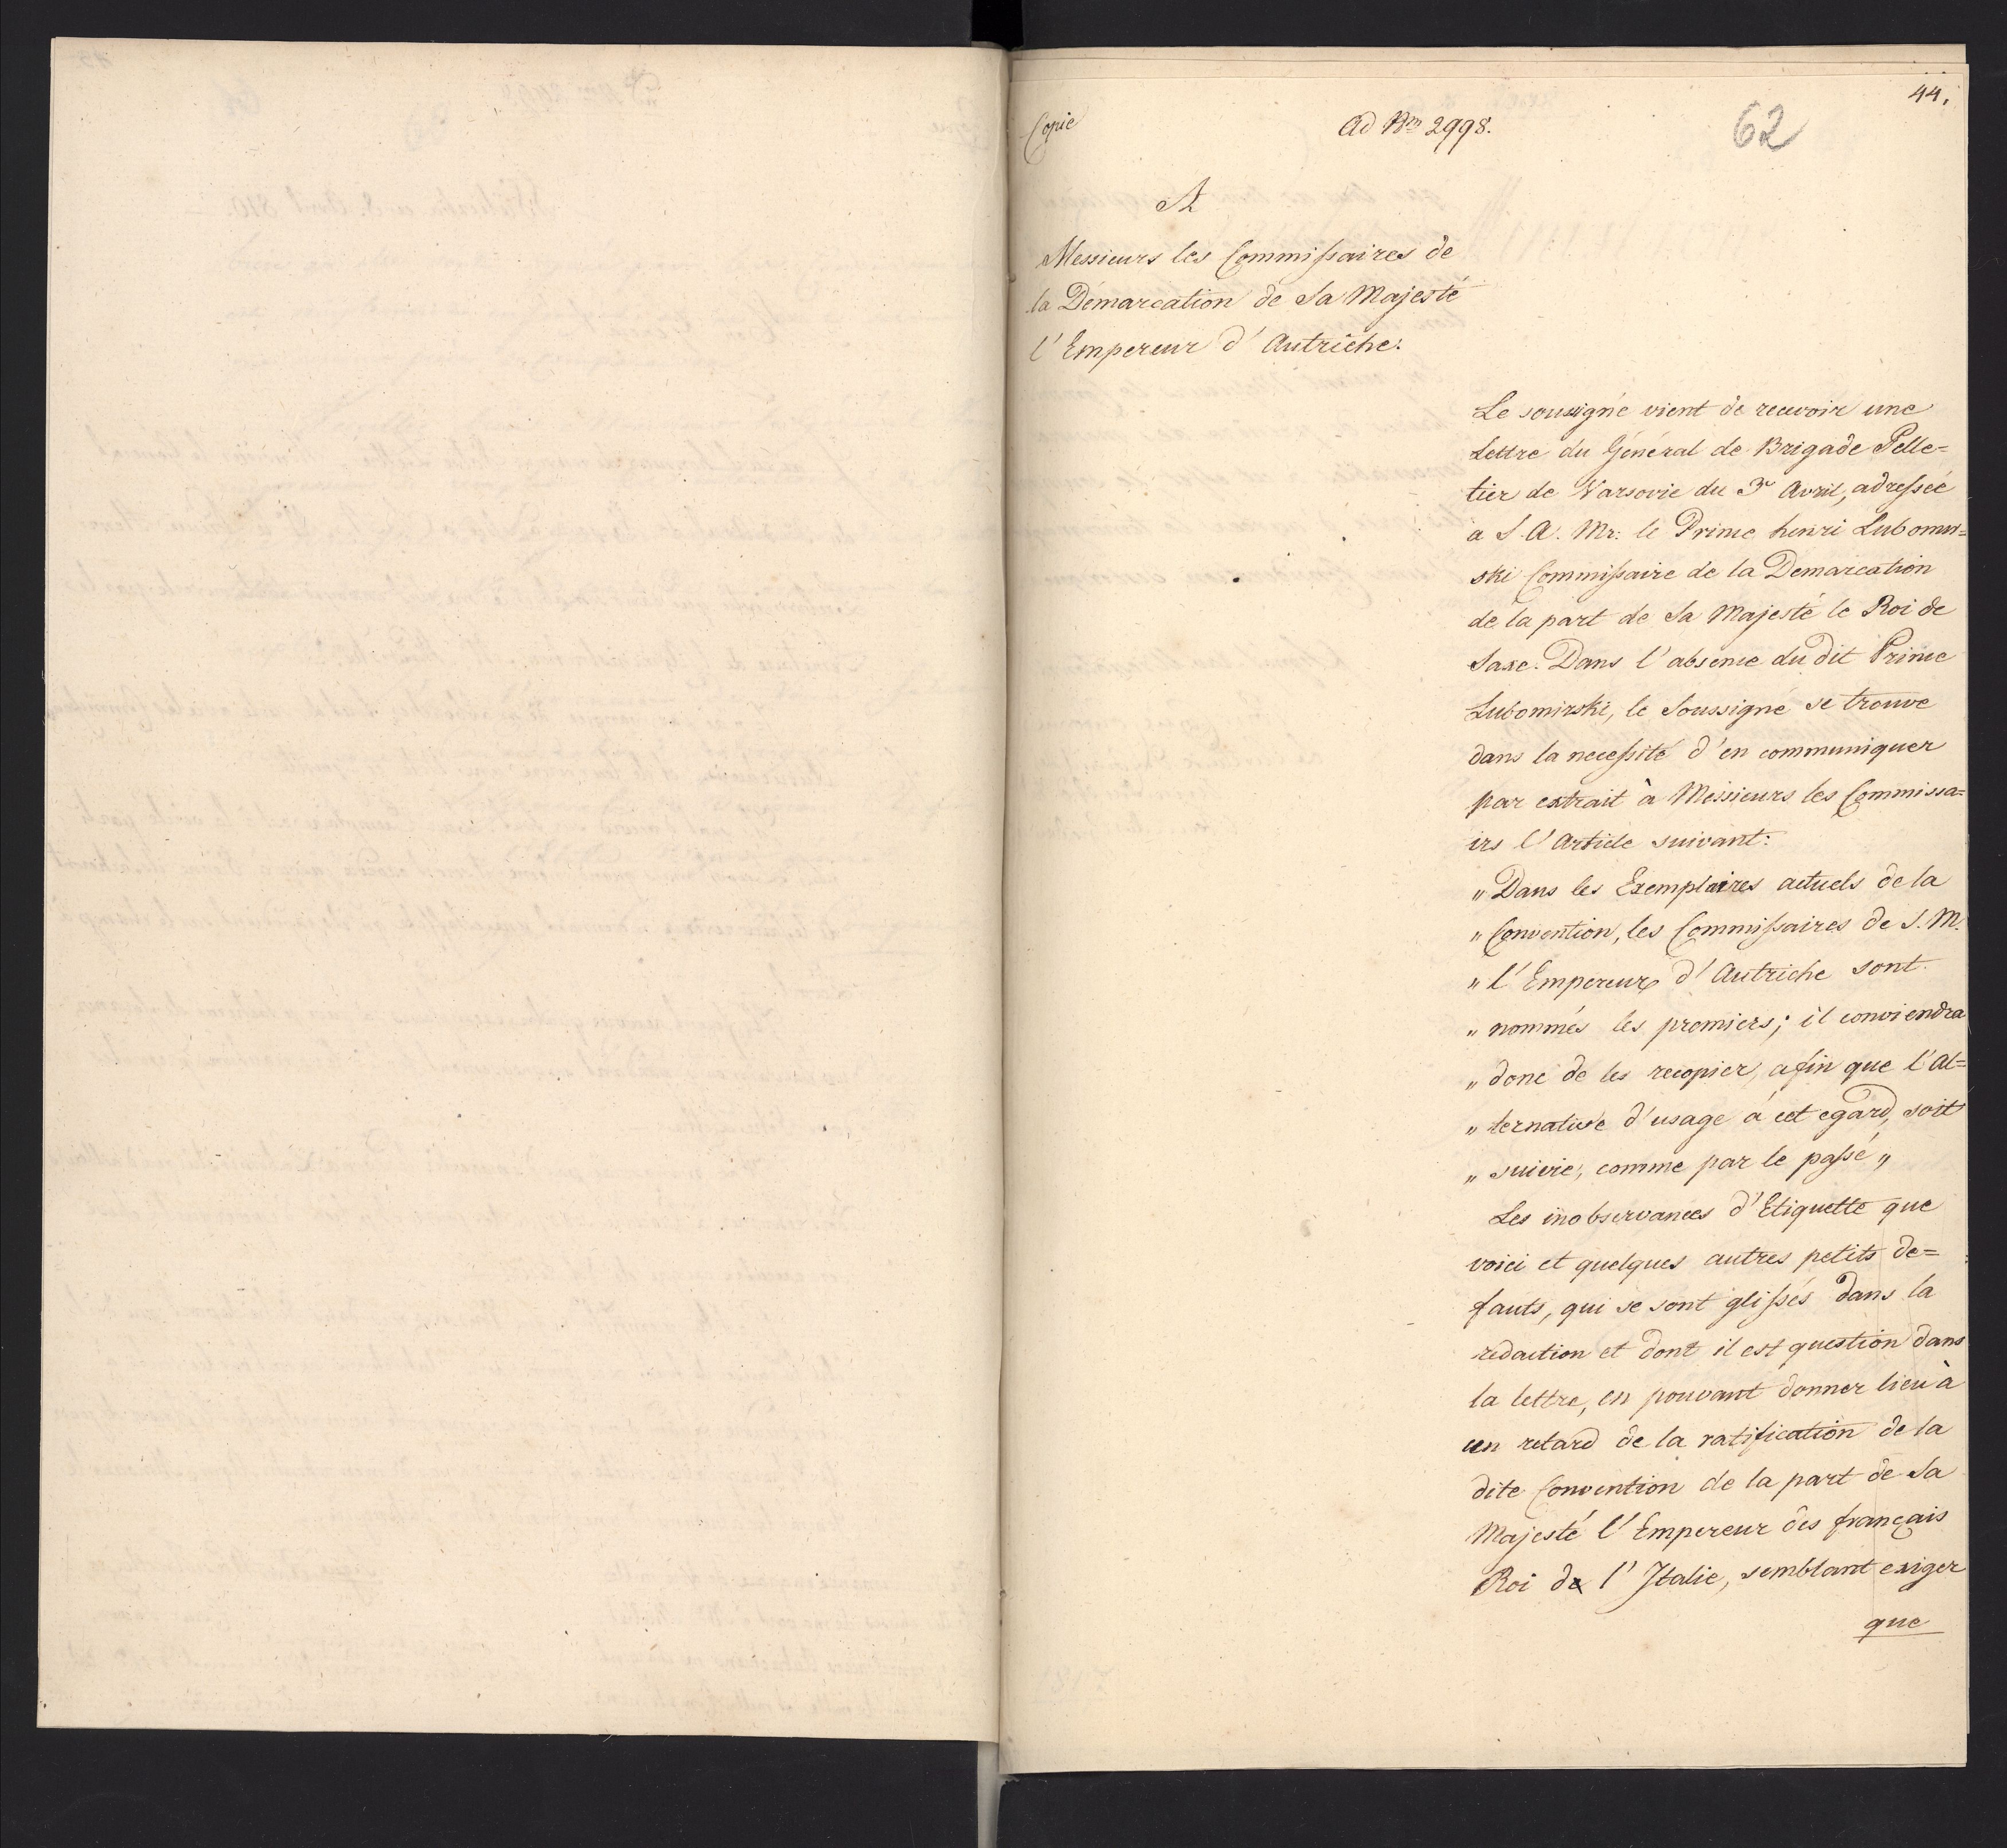 44.
Copie
Ad Nrm 2998.
62
A
Messieurs les Commissaires de
la Démarcation de Sa Majesté
l'Empereur d'Autriche:
Le soussigné vient de recevoir une
Lettre du Général de Brigade Pelle=
tier de Varsovie du 3r Avril, adressée
a S. A. Mr: le Prince henri Lubomir=
ski Commissaire de la Demarcation
de la part de Sa Majesté le Roi de
Saxe. Dans l'absence du dit Prince
Lubomirski, le Soussigné se trouve
dans la necessité d'en communiquer
par extrait à Messieurs les Commissa=
irs l'Article suivant:
„ Dans les Exemplaires actuels de la
„ Convention, les Commissaires de S. M.
„ l'Empereur d'Autriche sont
„ nommés les premiers; il conviendra
„ donc de les recopier, afin que l'Al=
„ ternative d'usage à cet egard, soit
„ suivie, comme par le passé „
Les inobservances d'Etiquette que
voici et quelques autres petits de=
fauts, qui se sont glissés dans la
redaction et dont il est question dans
la lettre, en pouvant donner lieu à
un retard de la ratification de la
dite Convention de la part de Sa
Majesté l'Empereur des français
Roi de l'Italie, semblant exiger
que